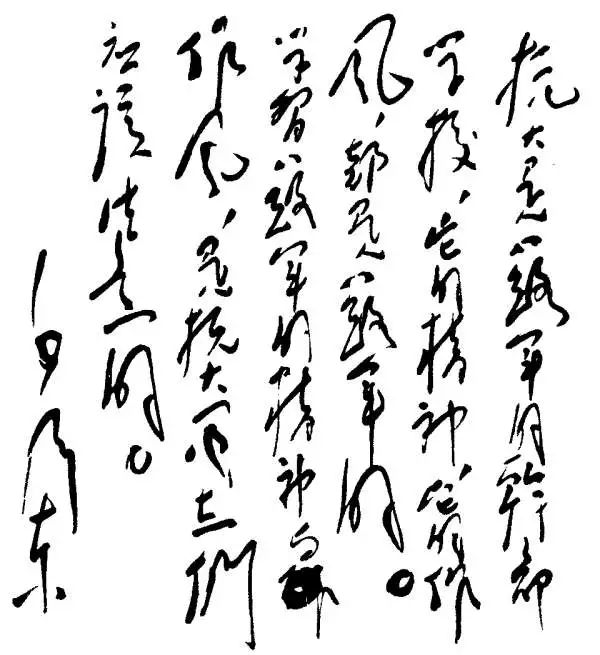 抗大是八路军的幹部
学校，它的精神，它的作
风，都是八路军的。
学習八路军的精神
作风，是抗大同志們
应该注意的。
毛泽东